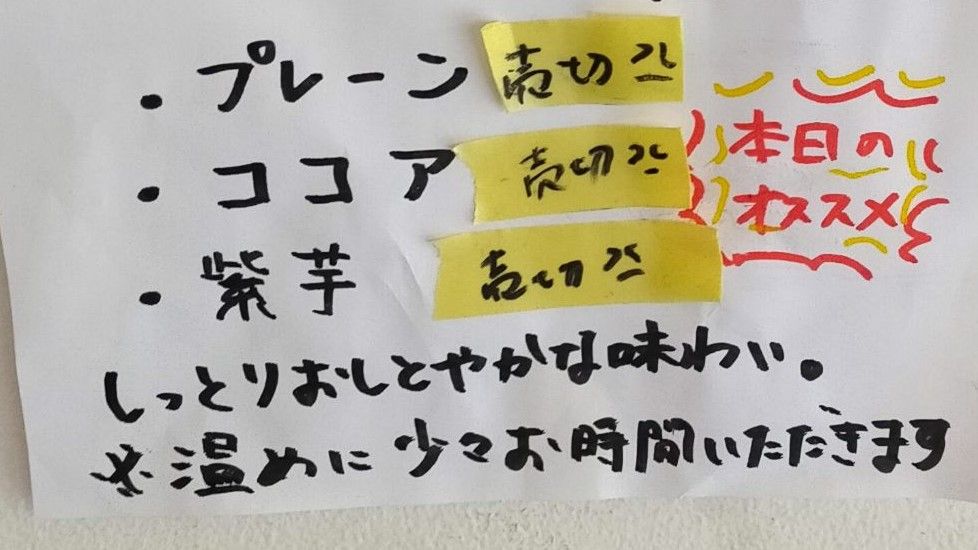 ・プレーン 売切れ
・ココア 売切れ
本日の
オススメ
・紫芋 売切れ
しっとりおしとやかな味わい。
※温めに少々お時間いただきます